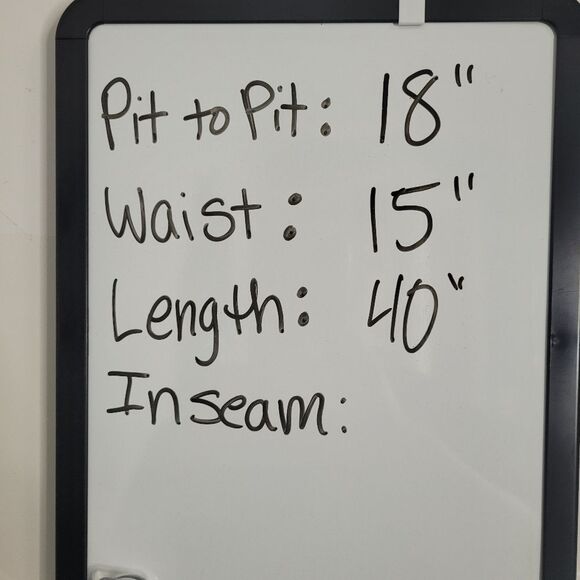 Pit to Pit: 18"
Waist: 15"
Length: 40"
Inseam: